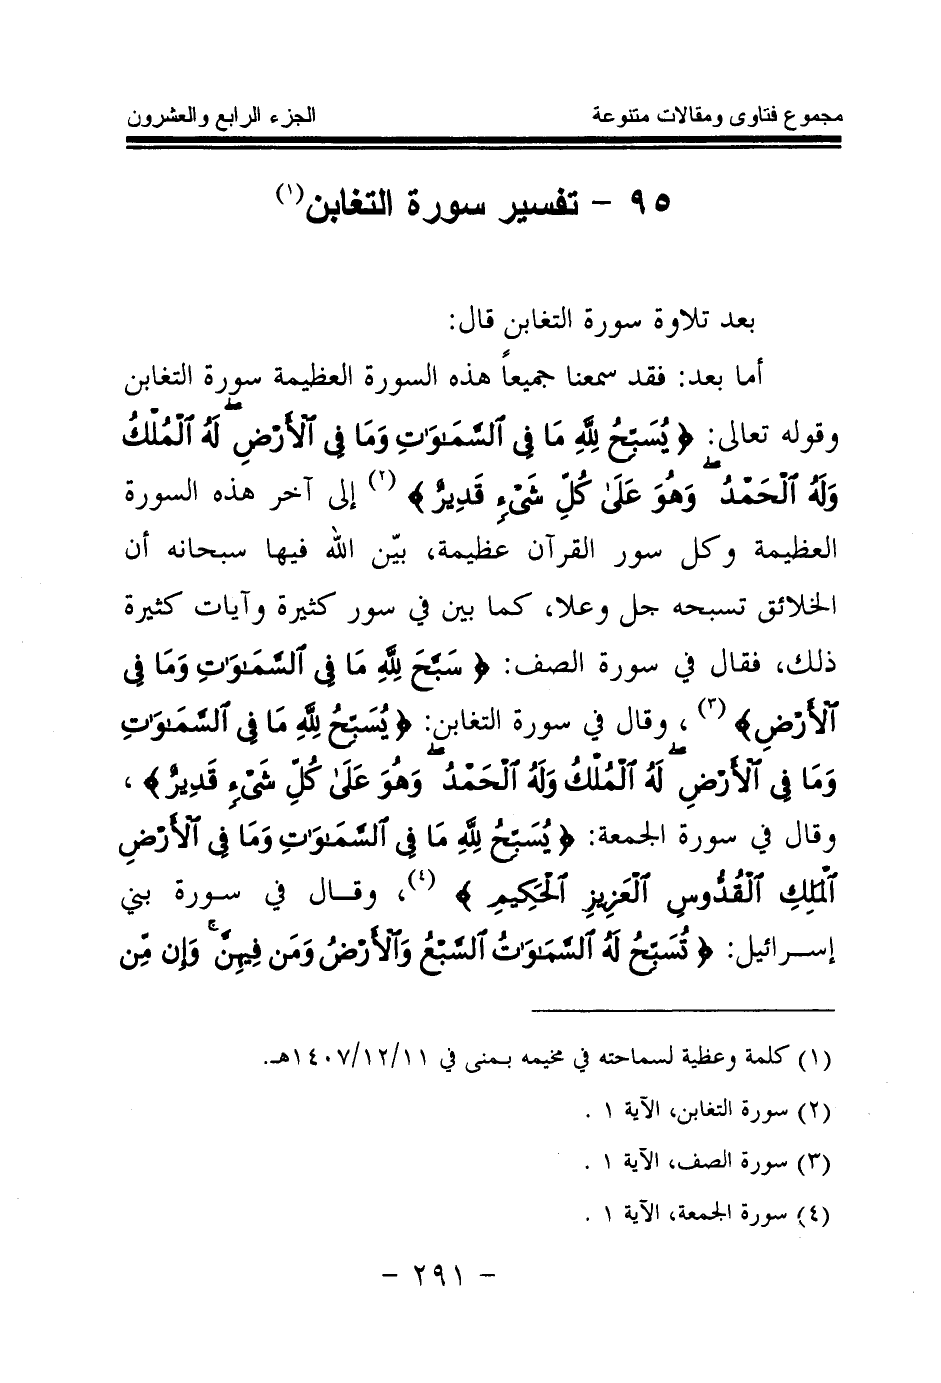 مجموع فتاوى ومقالات متنوعة الجزء الرابع والعشرون
٩٥ - تفسير سورة التغابن(١)
بعد تلاوة سورة التغابن قال:
أما بعد: فقد سمعنا جميعاً هذه السورة العظيمة سورة التغابن
وقوله تعالى: ﴿ يُسَبِّحُ لِلَّهِ مَا فِى ٱلسَّمَٰوَٰتِ وَمَا فِى ٱلْأَرْضِۖ لَهُ ٱلْمُلْكُ
وَلَهُ ٱلْحَمْدُۖ وَهُوَ عَلَىٰ كُلِّ شَىْءٍ قَدِيرٌ ﴾ (٢) إلى آخر هذه السورة
العظيمة وكل سور القرآن عظيمة، بيّن الله فيها سبحانه أن
الخلائق تسبحه جل وعلا، كما بين في سور كثيرة وآيات كثيرة
ذلك، فقال في سورة الصف: ﴿ سَبَّحَ لِلَّهِ مَا فِى ٱلسَّمَٰوَٰتِ وَمَا فِى
ٱلْأَرْضِ﴾ (٣) ، وقال في سورة التغابن: ﴿ يُسَبِّحُ لِلَّهِ مَا فِى ٱلسَّمَٰوَٰتِ
وَمَا فِى ٱلْأَرْضِۖ لَهُ ٱلْمُلْكُ وَلَهُ ٱلْحَمْدُۖ وَهُوَ عَلَىٰ كُلِّ شَىْءٍ قَدِيرٌ ﴾ ،
وقال في سورة الجمعة: ﴿ يُسَبِّحُ لِلَّهِ مَا فِى ٱلسَّمَٰوَٰتِ وَمَا فِى ٱلْأَرْضِ
ٱلْمَلِكِ ٱلْقُدُّوسِ ٱلْعَزِيزِ ٱلْحَكِيمِ ﴾ (٤)، وقــال في سـورة بني
إسـرائيل: ﴿ تُسَبِّحُ لَهُ ٱلسَّمَٰوَٰتُ ٱلسَّبْعُ وَٱلْأَرْضُ وَمَن فِيهِنَّۚ وَإِن مِّن
(١) كلمة وعظية لسماحته في مخيمه بـمنى في ١٤٠٧/١٢/١١هـ.
(٢) سورة التغابن، الآية ١ .
(٣) سورة الصف، الآية ١ .
(٤) سورة الجمعة، الآية ١ .
- ٢٩١ -